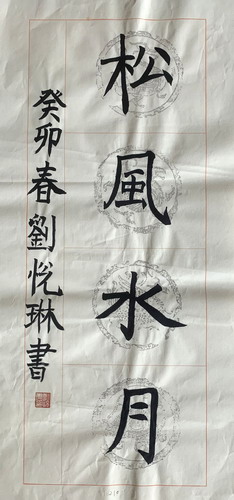 松風水月
癸卯春劉悦琳書